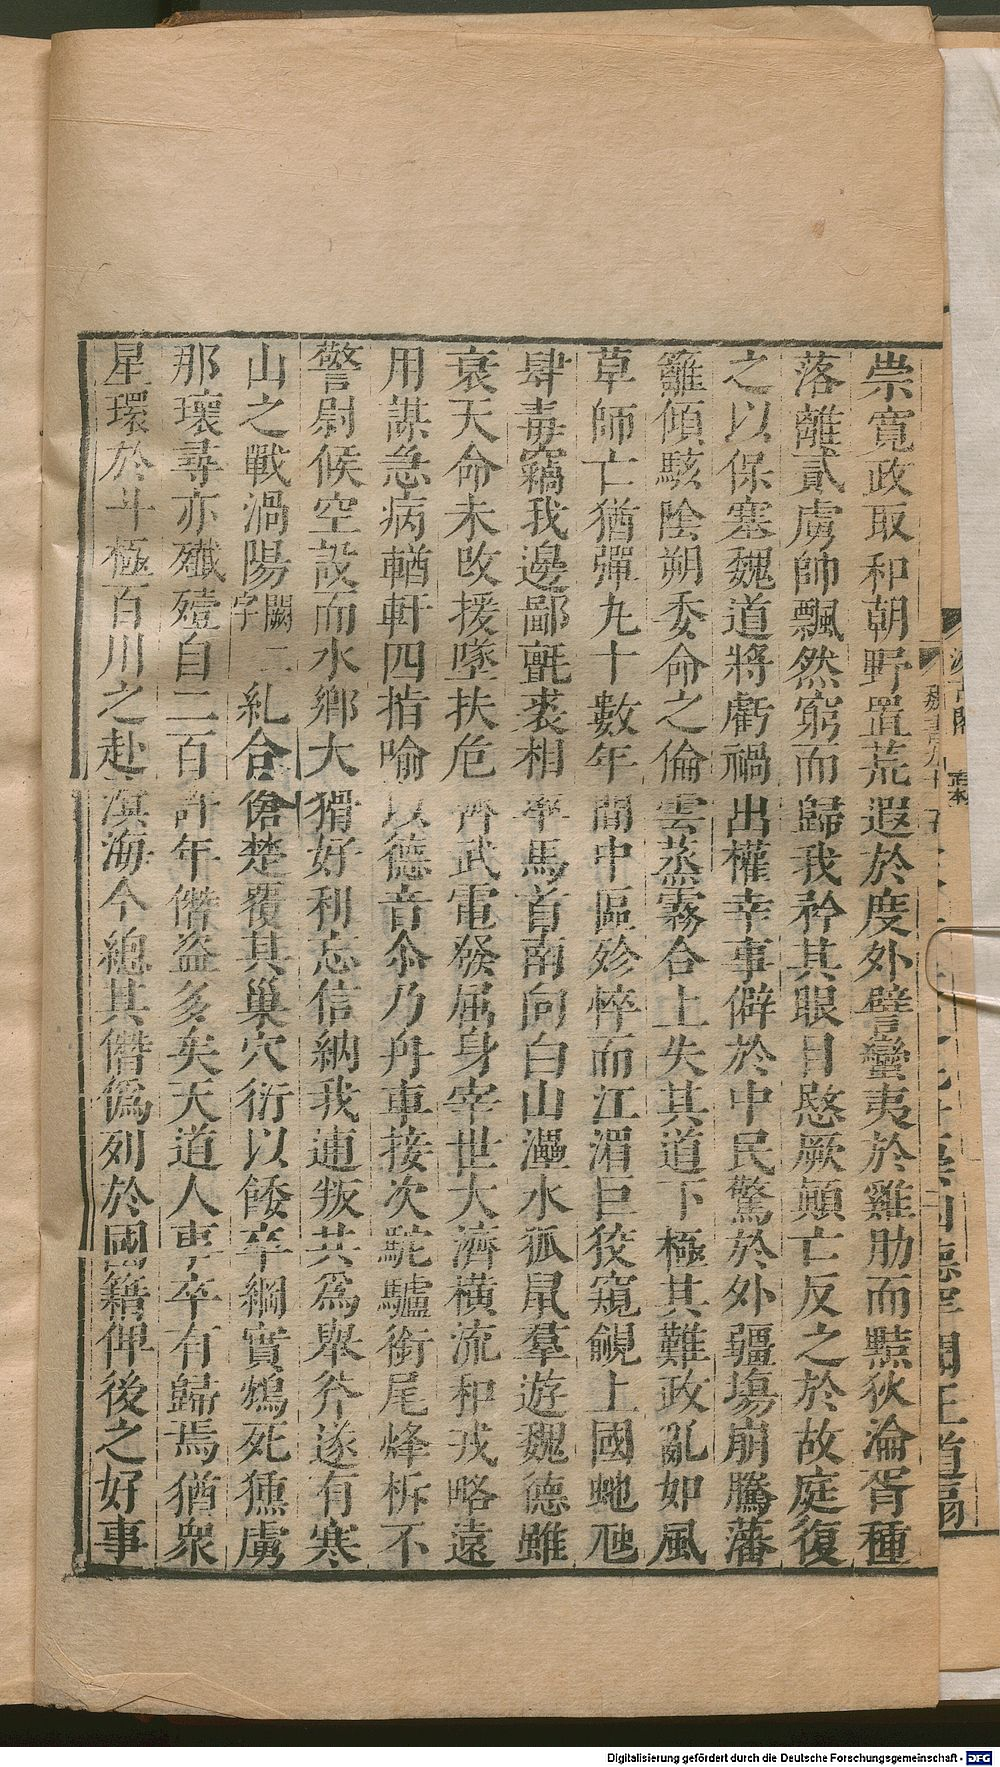 崇寬政取和朝野置荒遐於度外譬蠻夷於雞肋而黠狄淪胥種
落離貳虜帥飄然窮而歸我矜其眼目愍厥顛亡反之於故庭復
之以保塞魏道將虧禍出權幸事僻於中民驚於外疆場崩騰藩
籬傾駭陰朔委命之倫雲蒸霧合上失其道下極其難政亂如風
草師亡猶彈九十數年間中區殄悴而江湄巨狡窺覦上國虵虺
肆毒竊我邊鄙氈裘相率馬首南向白山灅水狐鼠羣遊魏德雖
衰天命未改援墜扶危齊武電發屈身宰世大濟橫流和戎略遠
用謀急病輶軒四指喻以德音爾乃舟車接次駝驢銜尾烽柝不
警尉候空設而水鄉大猾好利忘信納我逋叛共爲舉斧遂有寒
山之戰渦陽闕二字糺合傖楚覆其巢穴衍以餧卒綱實鴆死獯虜
那瓌尋亦殲殪自二百許年僭盜多矣天道人事卒有歸焉猶衆
星環於斗極百川之赴溟海今總其僭僞列於國籍俾後之好事
Digitalisierung gefördert durch die Deutsche Forschungsgemeinschaft - DFG